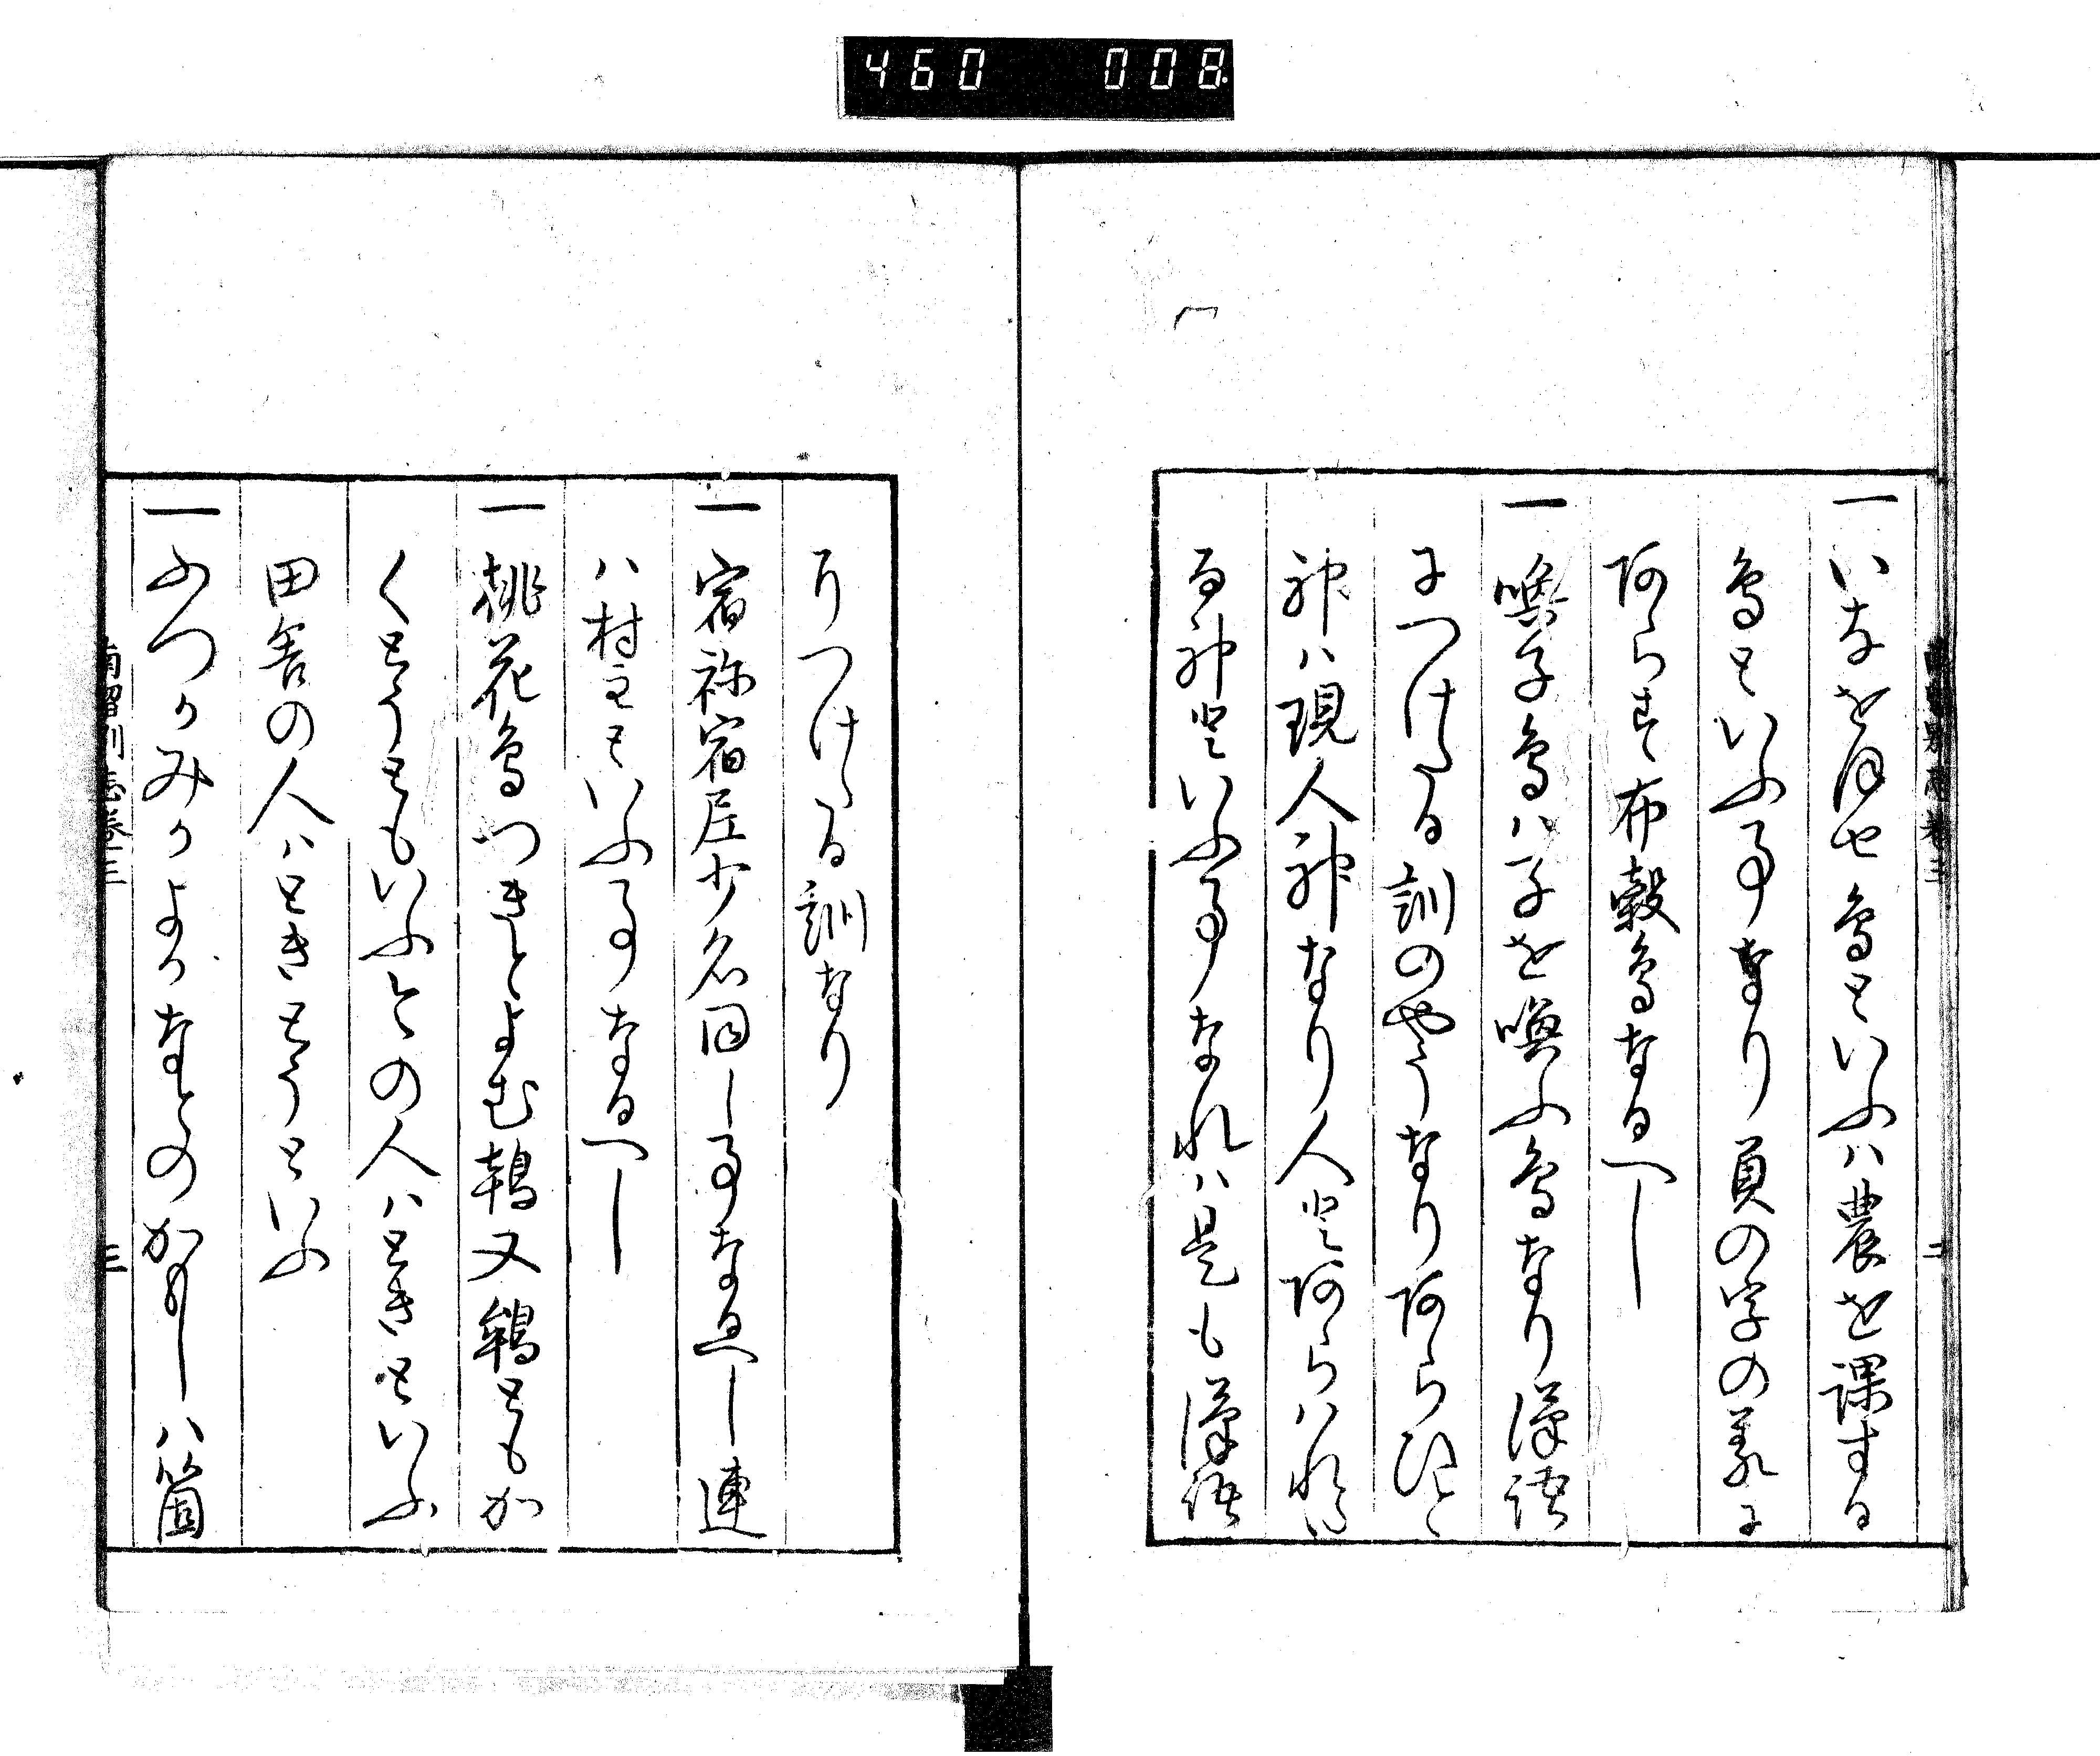 460 008
一いなをほせ鳥といふハ農を課する
鳥といふ事なり負の字の義に
あらす布穀鳥なるへし
一喚子鳥ハ子を喚ふ鳥なり漢語
につけたる訓のやうなりあらひと
神ハ現人神なり人とあらハれ給
る神といふ事なれハ是も漢語
りつけたる訓なり
一宿祢宿尼少名同し事なるへし連
ハ村主といふ事なるへし
一桃花鳥つきとよむ鶄又鶕ともか
くとうともいふ今の人ハときといふ
田舎の人ハときとうといふ
一ふつかみかよかなとのかもしハ箇
南留別志巻三
三